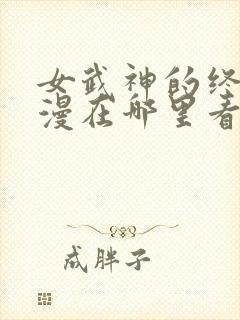 女武神的终
漫在哪里看
成胖子